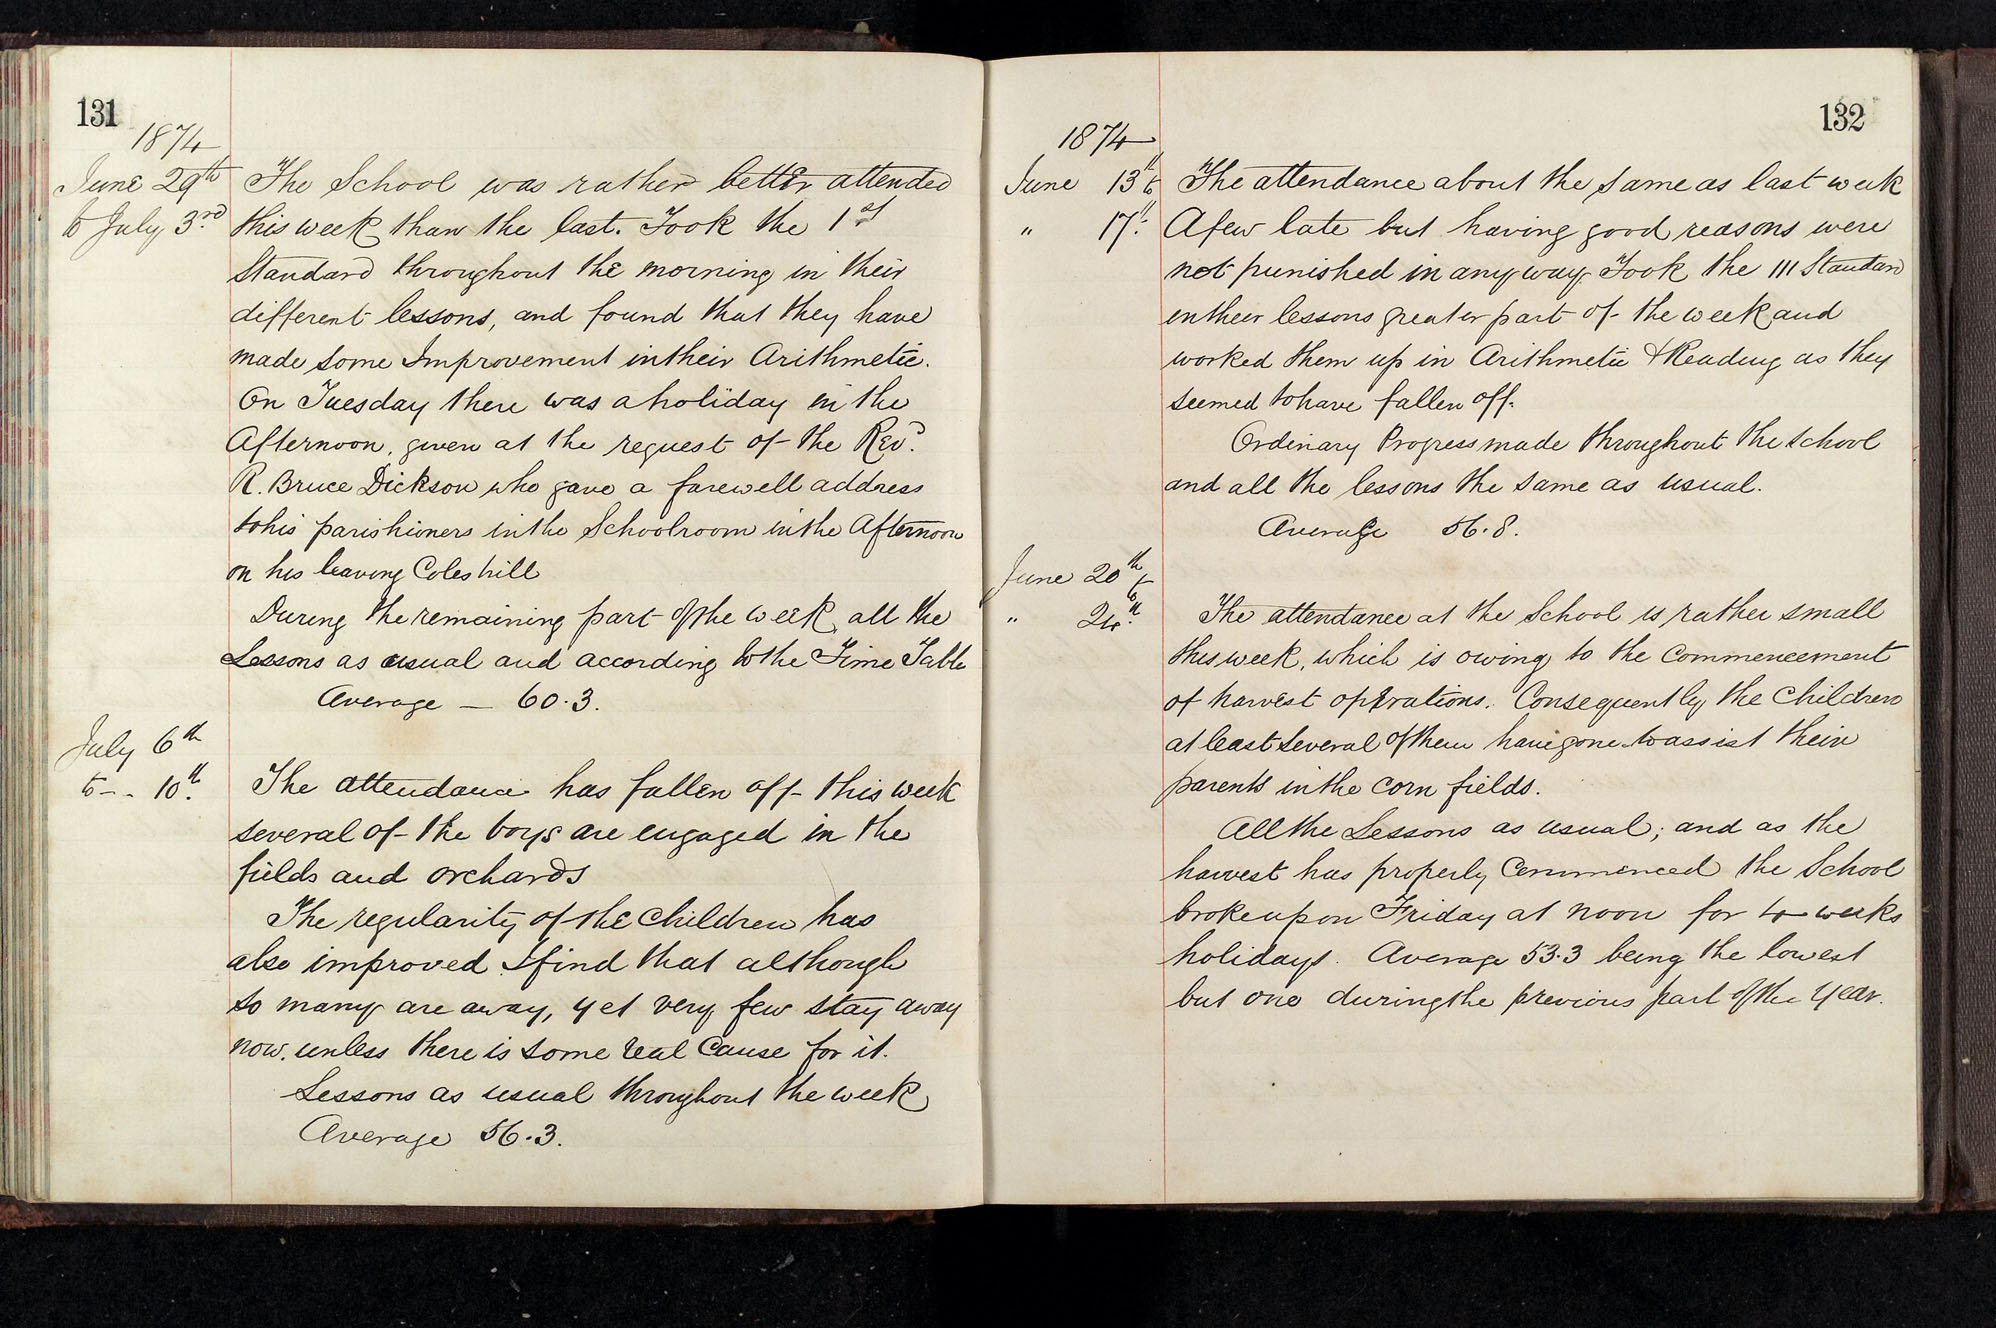 131
1874
June 29th The School was rather better attended
to July 3rd. this week than the last. Took the 1st
Standard throughout the morning in their
different lessons, and found that they have
made some Improvement in their Arithmetic.
On Tuesday there was a holiday in the
Afternoon, given at the request of the Revd.
R. Bruce Dickson who gave a farewell address
to his parishioners in the Schoolroom in the Afternoon
on his leaving Coleshill
During the remaining part of the week all the
Lessons as usual and according to the Time Table
Average — 60.3.
July 6th
to - - 10th. The attendance has fallen off this week
several of the boys are engaged in the
fields and orchards
The regularity of the Children has
also improved I find that although
so many are away, yet very few stay away
now. unless there is some real Cause for it.
Lessons as usual throughout the week
Average 56.3.
132
1874
June 13th to The attendance about the same as last week
" 17th. A few late but having good reasons were
not punished in any way. Took the III Standard
in their lessons greater part of the week and
worked them up in Arithmetic & Reading as they
seemed to have fallen off.
Ordinary Progress made throughout the School
and all the lessons the same as usual.
Average 56.8.
June 20th to
" 24th. The attendance at the School is rather small
this week, which is owing to the Commencement
of harvest operations. Consequently the Children
at least several of them have gone to assist their
parents in the Corn fields.
All the Lessons as usual; and as the
harvest has properly Commenced the School
broke up on Friday at noon for 4 weeks
holidays. Average 53.3 being the lowest
but one during the previous part of the Year.